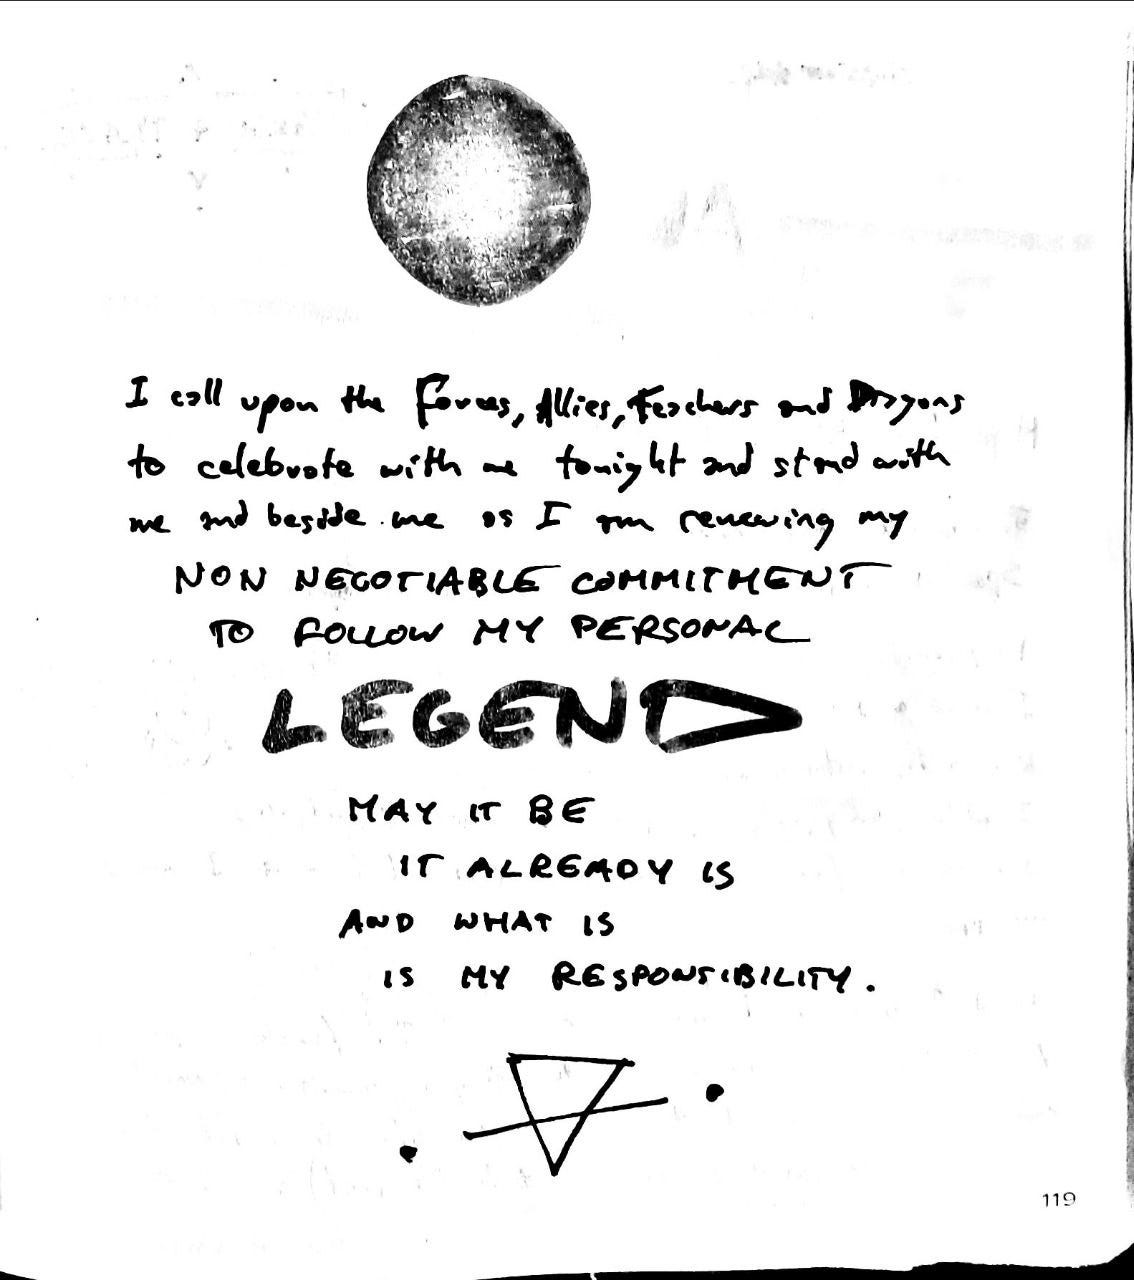 I call upon the Forces, Allies, Teachers and Dragons
to celebrate with me tonight and stand with
me and beside me as I am renewing my
NON NEGOTIABLE COMMITMENT
TO FOLLOW MY PERSONAL
LEGEND
MAY IT BE
IT ALREADY IS
AND WHAT IS
IS MY RESPONSIBILITY.
119